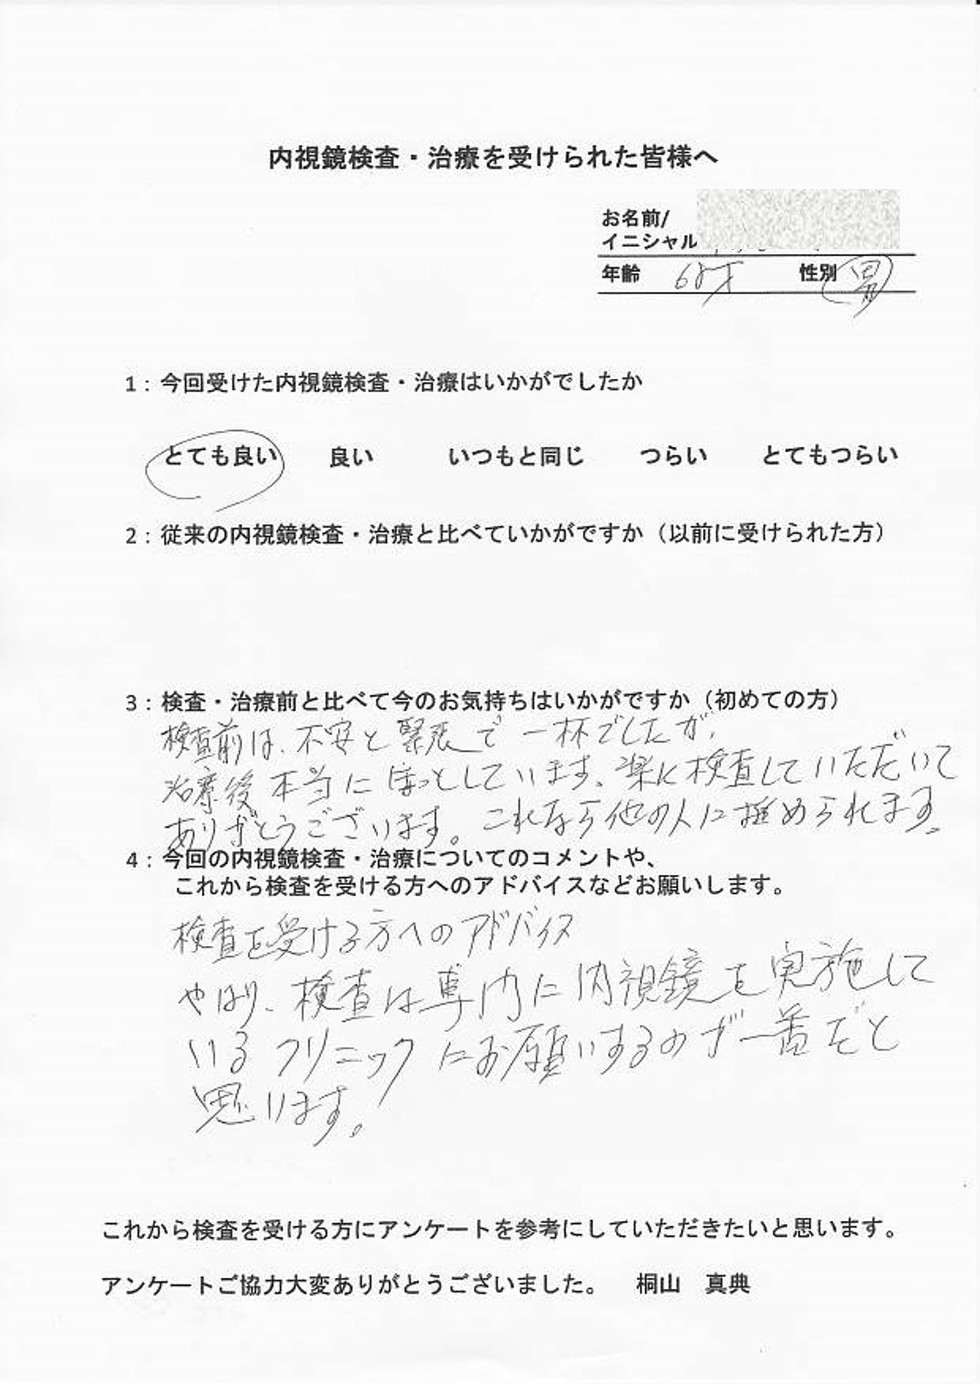 内視鏡検査・治療を受けられた皆様へ
お名前/
イニシャル
年齢 68才 性別 男
1：今回受けた内視鏡検査・治療はいかがでしたか
とても良い 良い いつもと同じ つらい とてもつらい
2：従来の内視鏡検査・治療と比べていかがですか（以前に受けられた方）
3：検査・治療前と比べて今のお気持ちはいかがですか（初めての方）
検査前は、不安と緊張で一杯でしたが、
治療後本当にほっとしています、楽に検査していただいて
ありがとうございます。これなら他の人に推められます、
4：今回の内視鏡検査・治療についてのコメントや、
これから検査を受ける方へのアドバイスなどお願いします。
検査を受ける方へのアドバイス
やはり、検査は専門に内視鏡を実施して
いるクリニックにお願いするのが一番だと
思います。
これから検査を受ける方にアンケートを参考にしていただきたいと思います。
アンケートご協力大変ありがとうございました。 桐山 真典